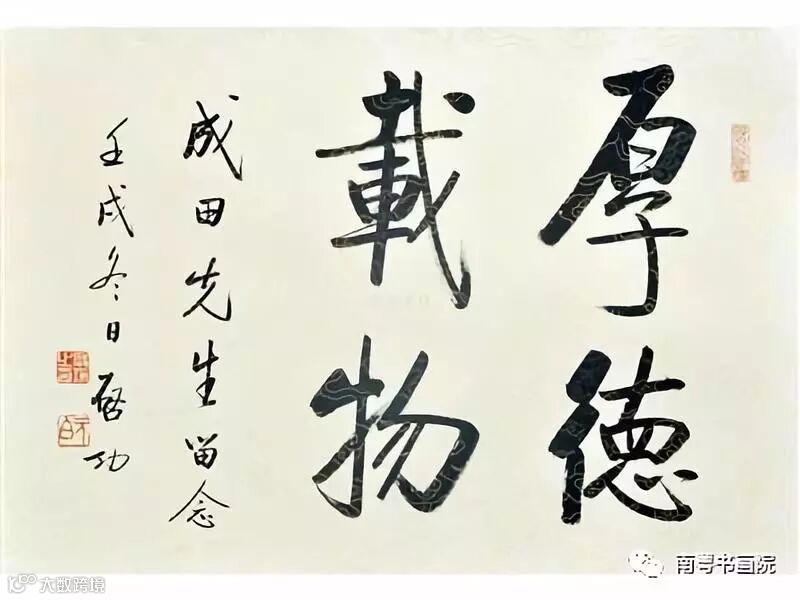 厚德
載物
成田先生留念
壬戌冬日啓功
南粤书画院
大数跨境